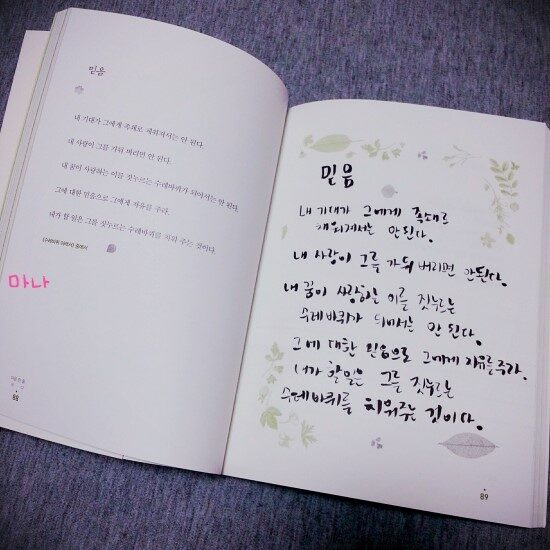 믿음
내 기대가 그에게 족쇄로 채워져서는 안 된다.
내 사랑이 그를 가둬 버리면 안 된다.
내 꿈이 사랑하는 이를 짓누르는 수레바퀴가 되어서는 안 된다.
그에 대한 믿음으로 그에게 자유를 주라.
네가 할 일은 그를 짓누르는 수레바퀴를 치워 주는 것이다.
《수레바퀴 아래서》 중에서
마나
88
믿음
내 기대가 그에게 족쇄로
채워져서는 안된다.
내 사랑이 그를 가둬 버리면 안된다.
내 꿈이 사랑하는 이를 짓누르는
수레바퀴가 되어서는 안 된다.
그에 대한 믿음으로 그에게 자유를주라.
네가 할일은 그를 짓누르는
수레바퀴를 치워주는 것이다.
89